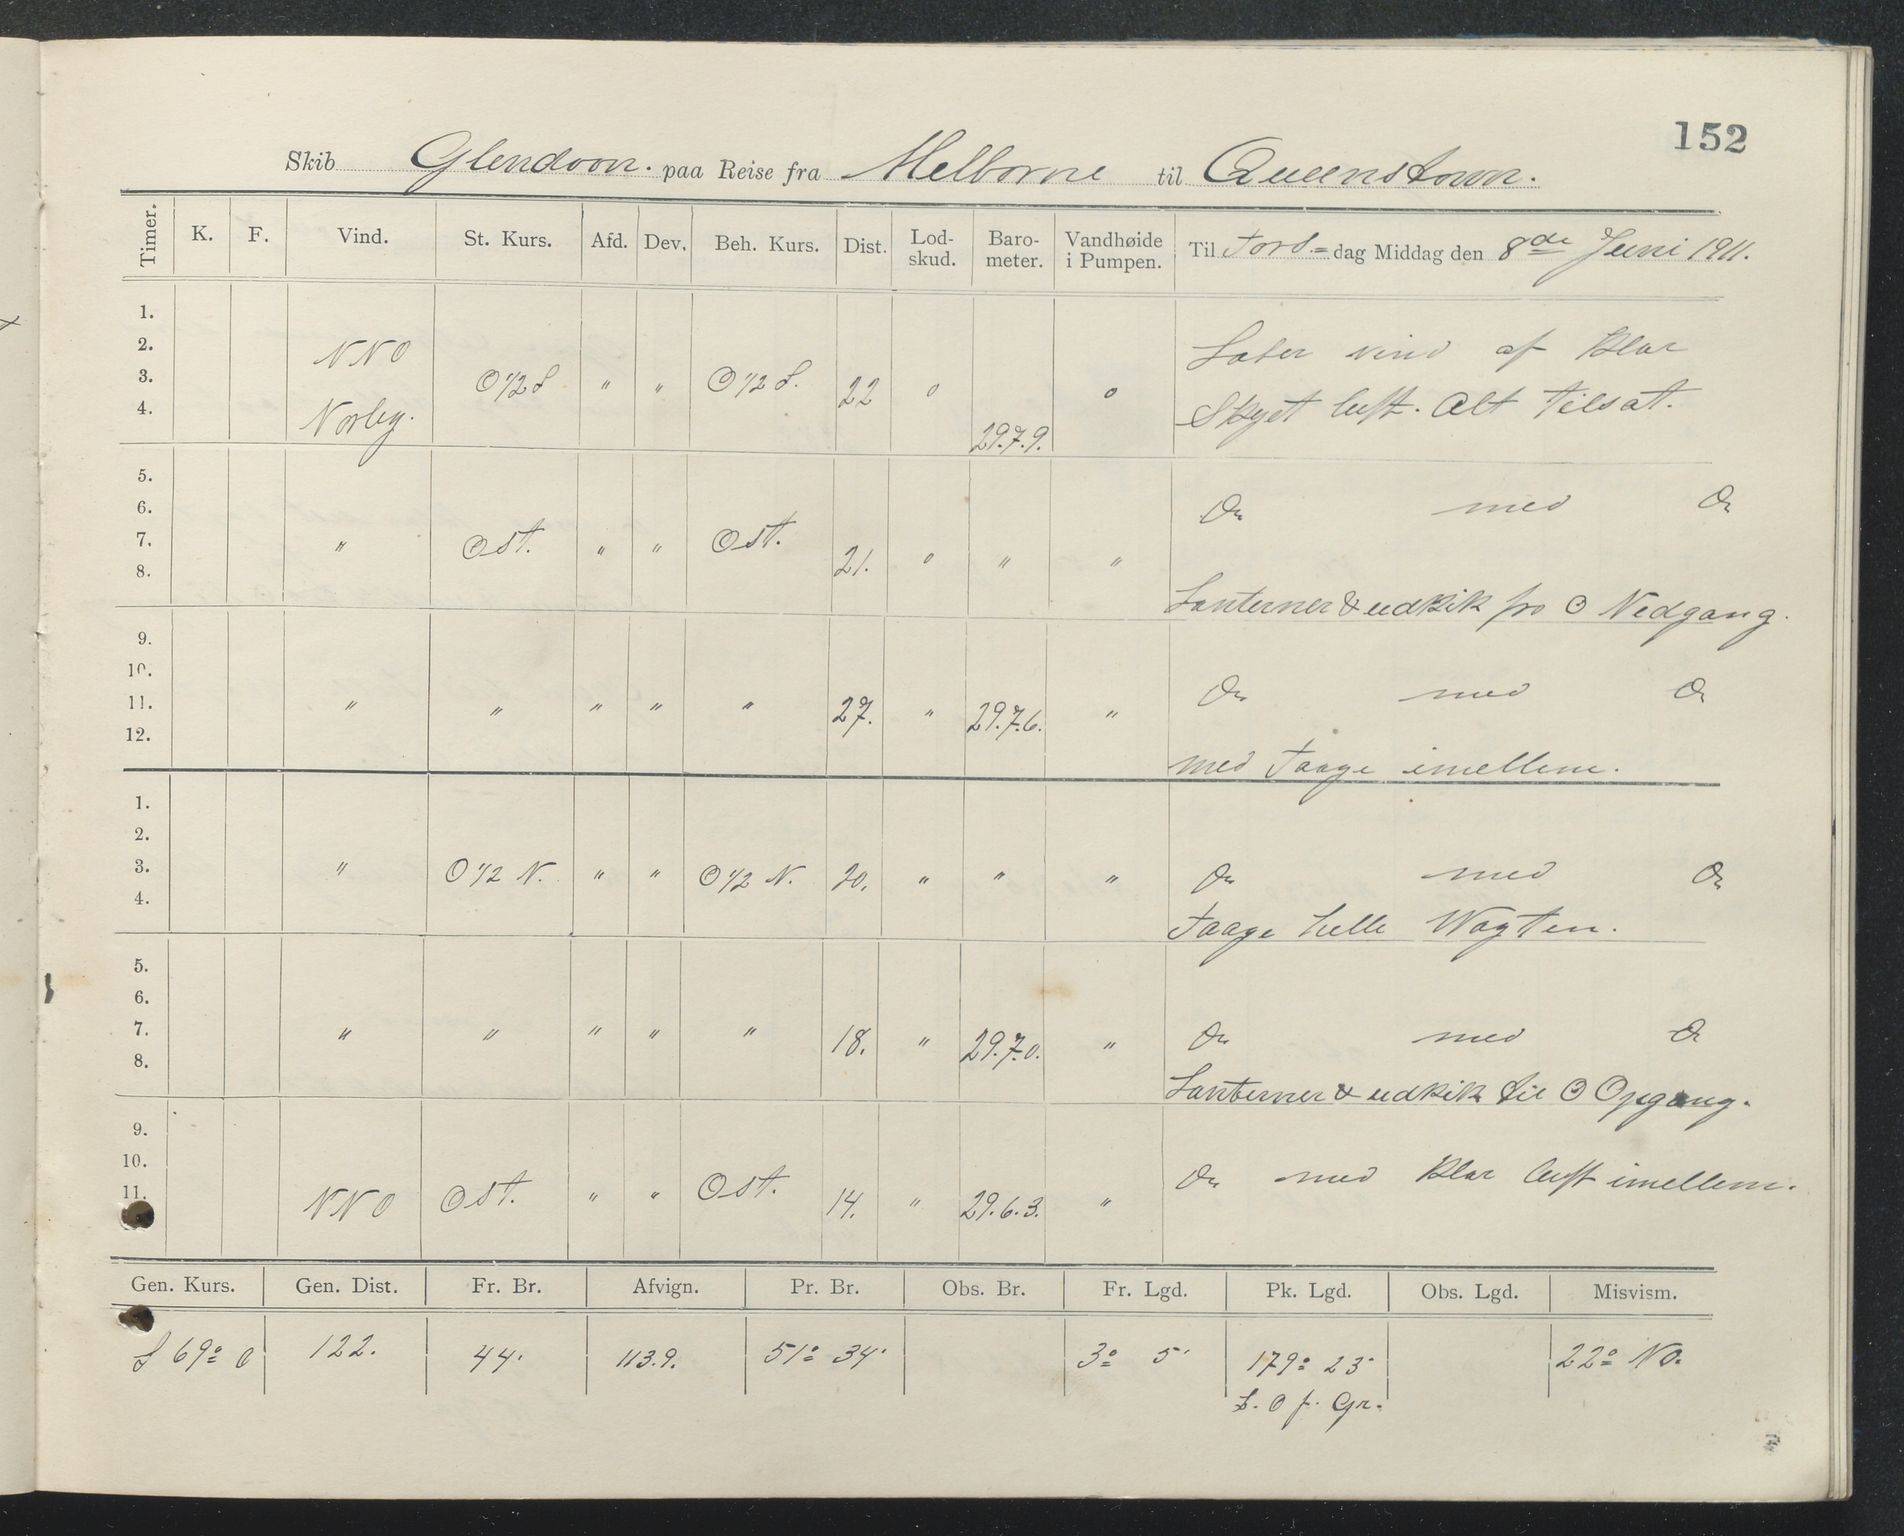 152
Skib Glendoon. paa Reise fra Melborne til Queenstown.
Timer. K. F. Vind. St. Kurs. Afd. Dev. Beh. Kurs. Dist. Lod-skud. Baro-meter. Vandhøide i Pumpen. Til Tors= dag Middag den 8de Juni 1911.
1.
2. NNO Laber vind af Klar
3. O 1/2 S " " O 1/2 S. 22 0 0
4. Norlig. 29.7.9. Skyet luft. Alt Tilsat.
5.
6. Do med Do
7. " Ost. " " Ost. 21. 0 " "
8.
Lanterner & udkik fra ⊙ Nedgang.
9.
10. Do med Do
11. " " " " " 27. " 29.7.6. "
12.
med Taage imellem.
1.
2.
3. " O 1/2 N. " " O 1/2 N. 20. " " " Do med Do
4. Taage hele Wagten.
5.
6.
7. " " " " " 18. " 29.7.0. " Do med Do
8.
Lanterner & udkik til ⊙ Opgang.
9.
10. Do med Klar luft imellem.
11. NNO Ost. " " Ost. 14. " 29.6.3. "
Gen. Kurs. Gen. Dist. Fr. Br. Afvign. Pr. Br. Obs. Br. Fr. Lgd. Pk. Lgd. Obs. Lgd. Misvism.
S 69° O 122. 44' 113.9. 51° 34' 3° 5' 179° 23' 22° NO.
L. O f. Gr.